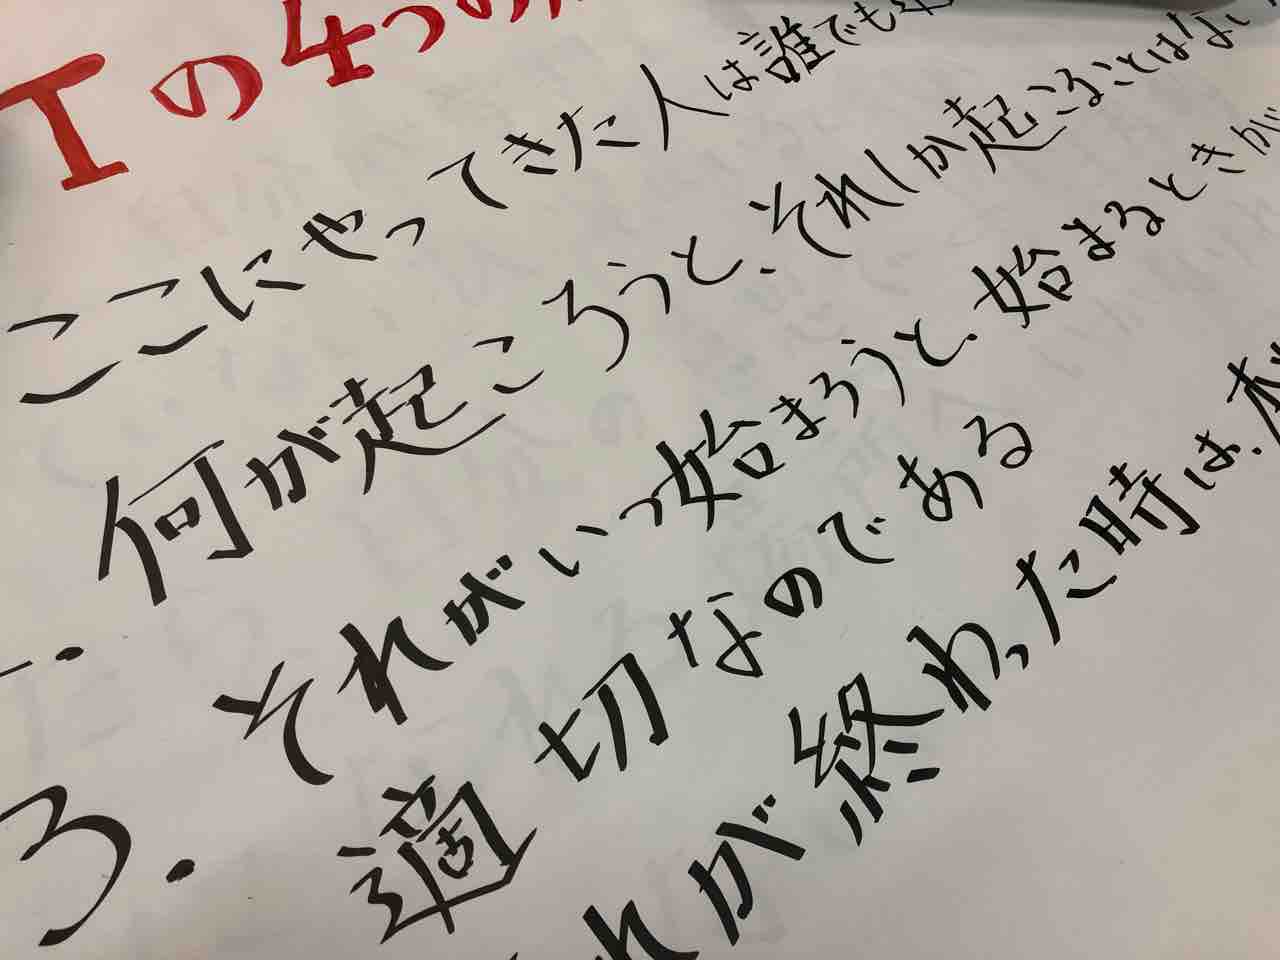 Tの4つの
ここにやってきた人は誰でも
何が起ころうと、それしか起こることはない
2.
それがいつ始まろうと、始まるときが
3.
適切なのである
れが終わった時は、本